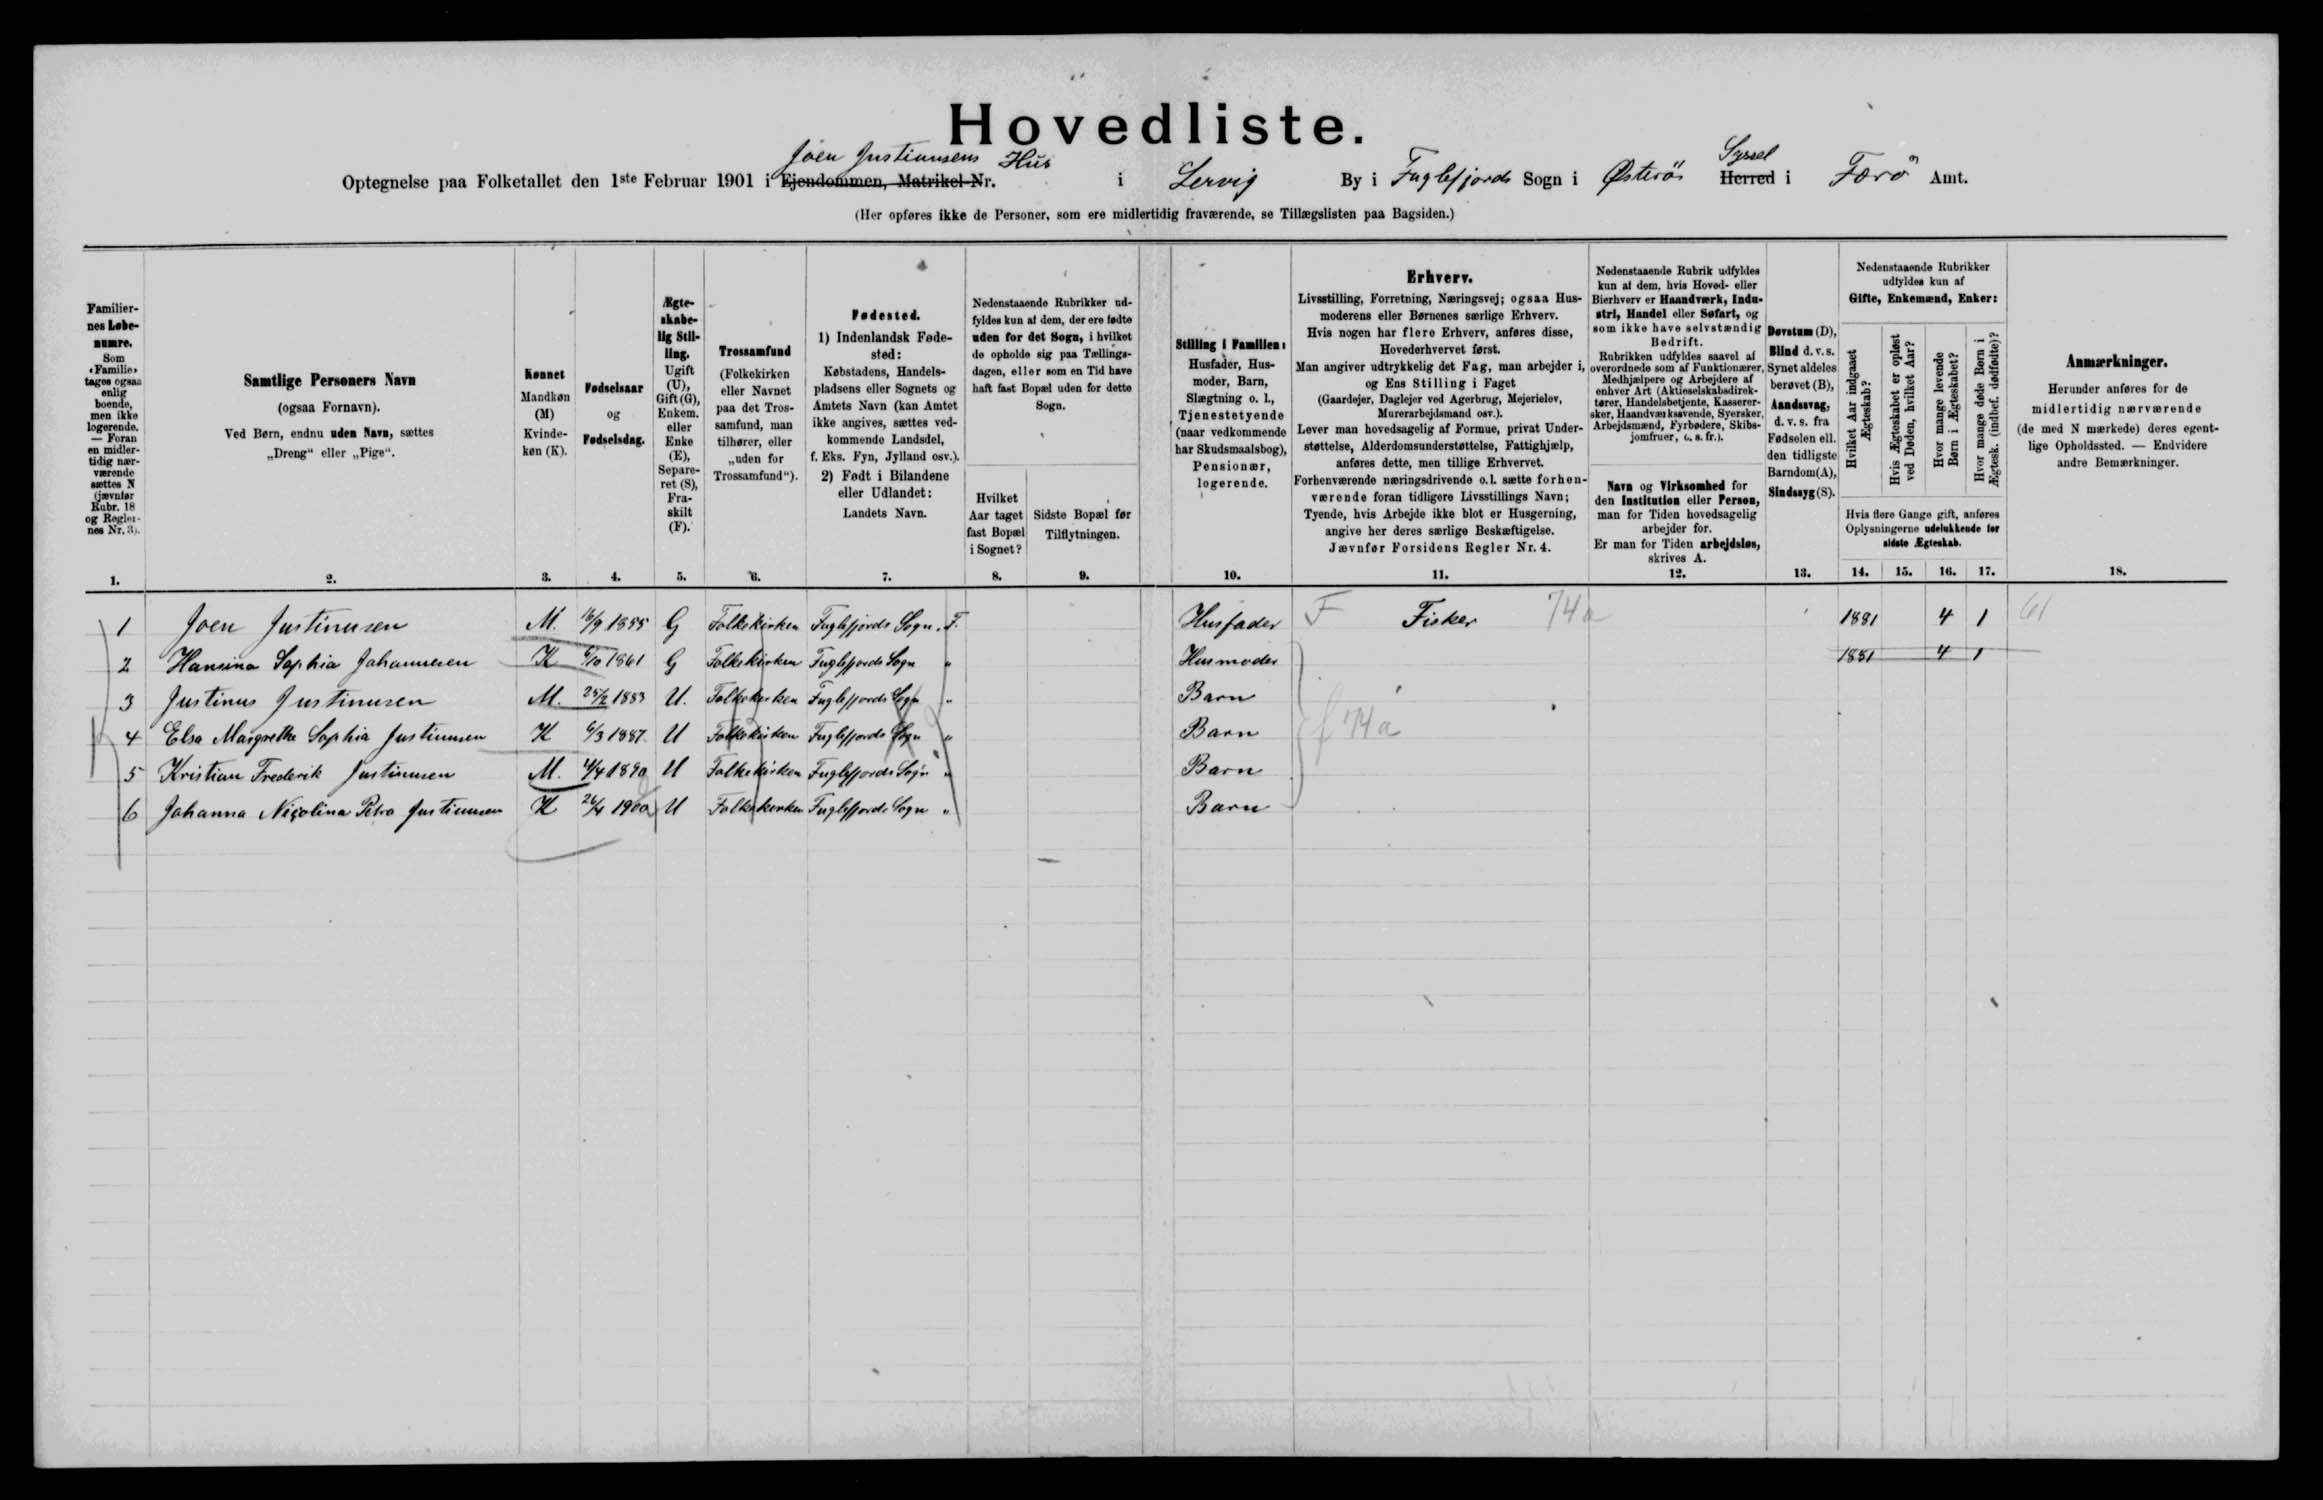 Hovedliste.
Joen Justinusens Hus Syssel
Optegnelse paa Folketallet den 1ste Februar 1901 i Ejendommen, Matrikel-Nr. i Lervig By i Fuglefjords Sogn i Østerøs Herred i Færø Amt.
(Her opføres ikke de Personer, som ere midlertidig fraværende, se Tillægslisten paa Bagsiden.)
Familier-
nes Løbe-
numre.
Som
«Familie»
tages ogsaa
enlig
boende,
men ikke
logerende.
— Foran
en midler-
tidig nær-
værende
sættes N
(jævnfør
Rubr. 18
og Regler-
nes Nr. 3).
1.
Samtlige Personers Navn
(ogsaa Fornavn).
Ved Børn, endnu uden Navn, sættes
„Dreng“ eller „Pige“.
2.
Kønnet
Mandkøn
(M)
Kvinde-
køn (K).
3.
Fødselsaar
og
Fødselsdag.
4.
Ægte-
skabe-
lig Stil-
ling.
Ugift
(U),
Gift (G),
Enkem.
eller
Enke
(E),
Separe-
ret (S),
Fra-
skilt
(F).
5.
Trossamfund
(Folkekirken
eller Navnet
paa det Tros-
samfund, man
tilhører, eller
„uden for
Trossamfund“).
6.
Fødested.
1) Indenlandsk Føde-
sted:
Købstadens, Handels-
pladsens eller Sognets og
Amtets Navn (kan Amtet
ikke angives, sættes ved-
kommende Landsdel,
f. Eks. Fyn, Jylland osv.).
2) Født i Bilandene
eller Udlandet:
Landets Navn.
7.
Nedenstaaende Rubrikker ud-
fyldes kun af dem, der ere fødte
uden for det Sogn, i hvilket
de opholde sig paa Tællings-
dagen, eller som en Tid have
haft fast Bopæl uden for dette
Sogn.
Hvilket
Aar taget
fast Bopæl
i Sognet?
8.
Sidste Bopæl før
Tilflytningen.
9.
Stilling i Familien:
Husfader, Hus-
moder, Barn,
Slægtning o. l.,
Tjenestetyende
(naar vedkommende
har Skudsmaalsbog),
Pensionær,
logerende.
10.
Erhverv.
Livsstilling, Forretning, Næringsvej; ogsaa Hus-
moderens eller Børnenes særlige Erhverv.
Hvis nogen har flere Erhverv, anføres disse,
Hovederhvervet først.
Man angiver udtrykkelig det Fag, man arbejder i,
og Ens Stilling i Faget
(Gaardejer, Daglejer ved Agerbrug, Mejerielev,
Murerarbejdsmand osv.).
Lever man hovedsagelig af Formue, privat Under-
støttelse, Alderdomsunderstøttelse, Fattighjælp,
anføres dette, men tillige Erhvervet.
Forhenværende næringsdrivende o. l. sætte forhen-
værende foran tidligere Livsstillings Navn;
Tyende, hvis Arbejde ikke blot er Husgerning,
angive her deres særlige Beskæftigelse.
Jævnfør Forsidens Regler Nr. 4.
11.
Nedenstaaende Rubrik udfyldes
kun af dem, hvis Hoved- eller
Bierhverv er Haandværk, Indu-
stri, Handel eller Søfart, og
som ikke have selvstændig
Bedrift.
Rubrikken udfyldes saavel af
overordnede som af Funktionærer,
Medhjælpere og Arbejdere af
enhver Art (Aktieselskabsdirek-
tører, Handelsbetjente, Kasserer-
sker, Haandværkssvende, Syersker,
Arbejdsmænd, Fyrbødere, Skibs-
jomfruer, o. s. fr.).
Navn og Virksomhed for
den Institution eller Person,
man for Tiden hovedsagelig
arbejder for.
Er man for Tiden arbejdsløs,
skrives A.
12.
Døvstum (D),
Blind d. v. s.
Synet aldeles
berøvet (B),
Aandssvag,
d. v. s. fra
Fødselen ell.
den tidligste
Barndom (A),
Sindssyg (S).
13.
Nedenstaaende Rubrikker
udfyldes kun af
Gifte, Enkemænd, Enker:
Hvilket Aar indgaaet
Ægteskab?
Hvis Ægteskabet er opløst
ved Døden, hvilket Aar?
Hvor mange levende
Børn i Ægteskabet?
Hvor mange døde Børn i
Ægtesk. (indbef. dødfødte)?
Hvis flere Gange gift, anføres
Oplysningerne udelukkende for
sidste Ægteskab.
14. 15. 16. 17.
Anmærkninger.
Herunder anføres for de
midlertidig nærværende
(de med N mærkede) deres egent-
lige Opholdssted. — Endvidere
andre Bemærkninger.
18.
1 Joen Justinusen M. 16/9 1855 G Folkekirken Fuglefjords Sogn. F. Husfader F Fisker 74a 1881 4 1 61
2 Hansina Sophia Johannesen K 6/10 1861 G Folkekirken Fuglefjords Sogn " Husmoder 1881 4 1
3 Justinus Justinusen M. 25/2 1883 U. Folkekirken Fuglefjords Sogn " Barn
4 Elsa Margrethe Sophia Justinusen K 6/3 1887. U Folkekirken Fuglefjords Sogn " Barn f 74a
5 Kristian Frederik Justinusen M. 4/4 1890 U Folkekirken Fuglefjords Sogn " Barn
6 Johanna Nicolina Petra Justinusen K 26/4 1900 U Folkekirken Fuglefjords Sogn " Barn